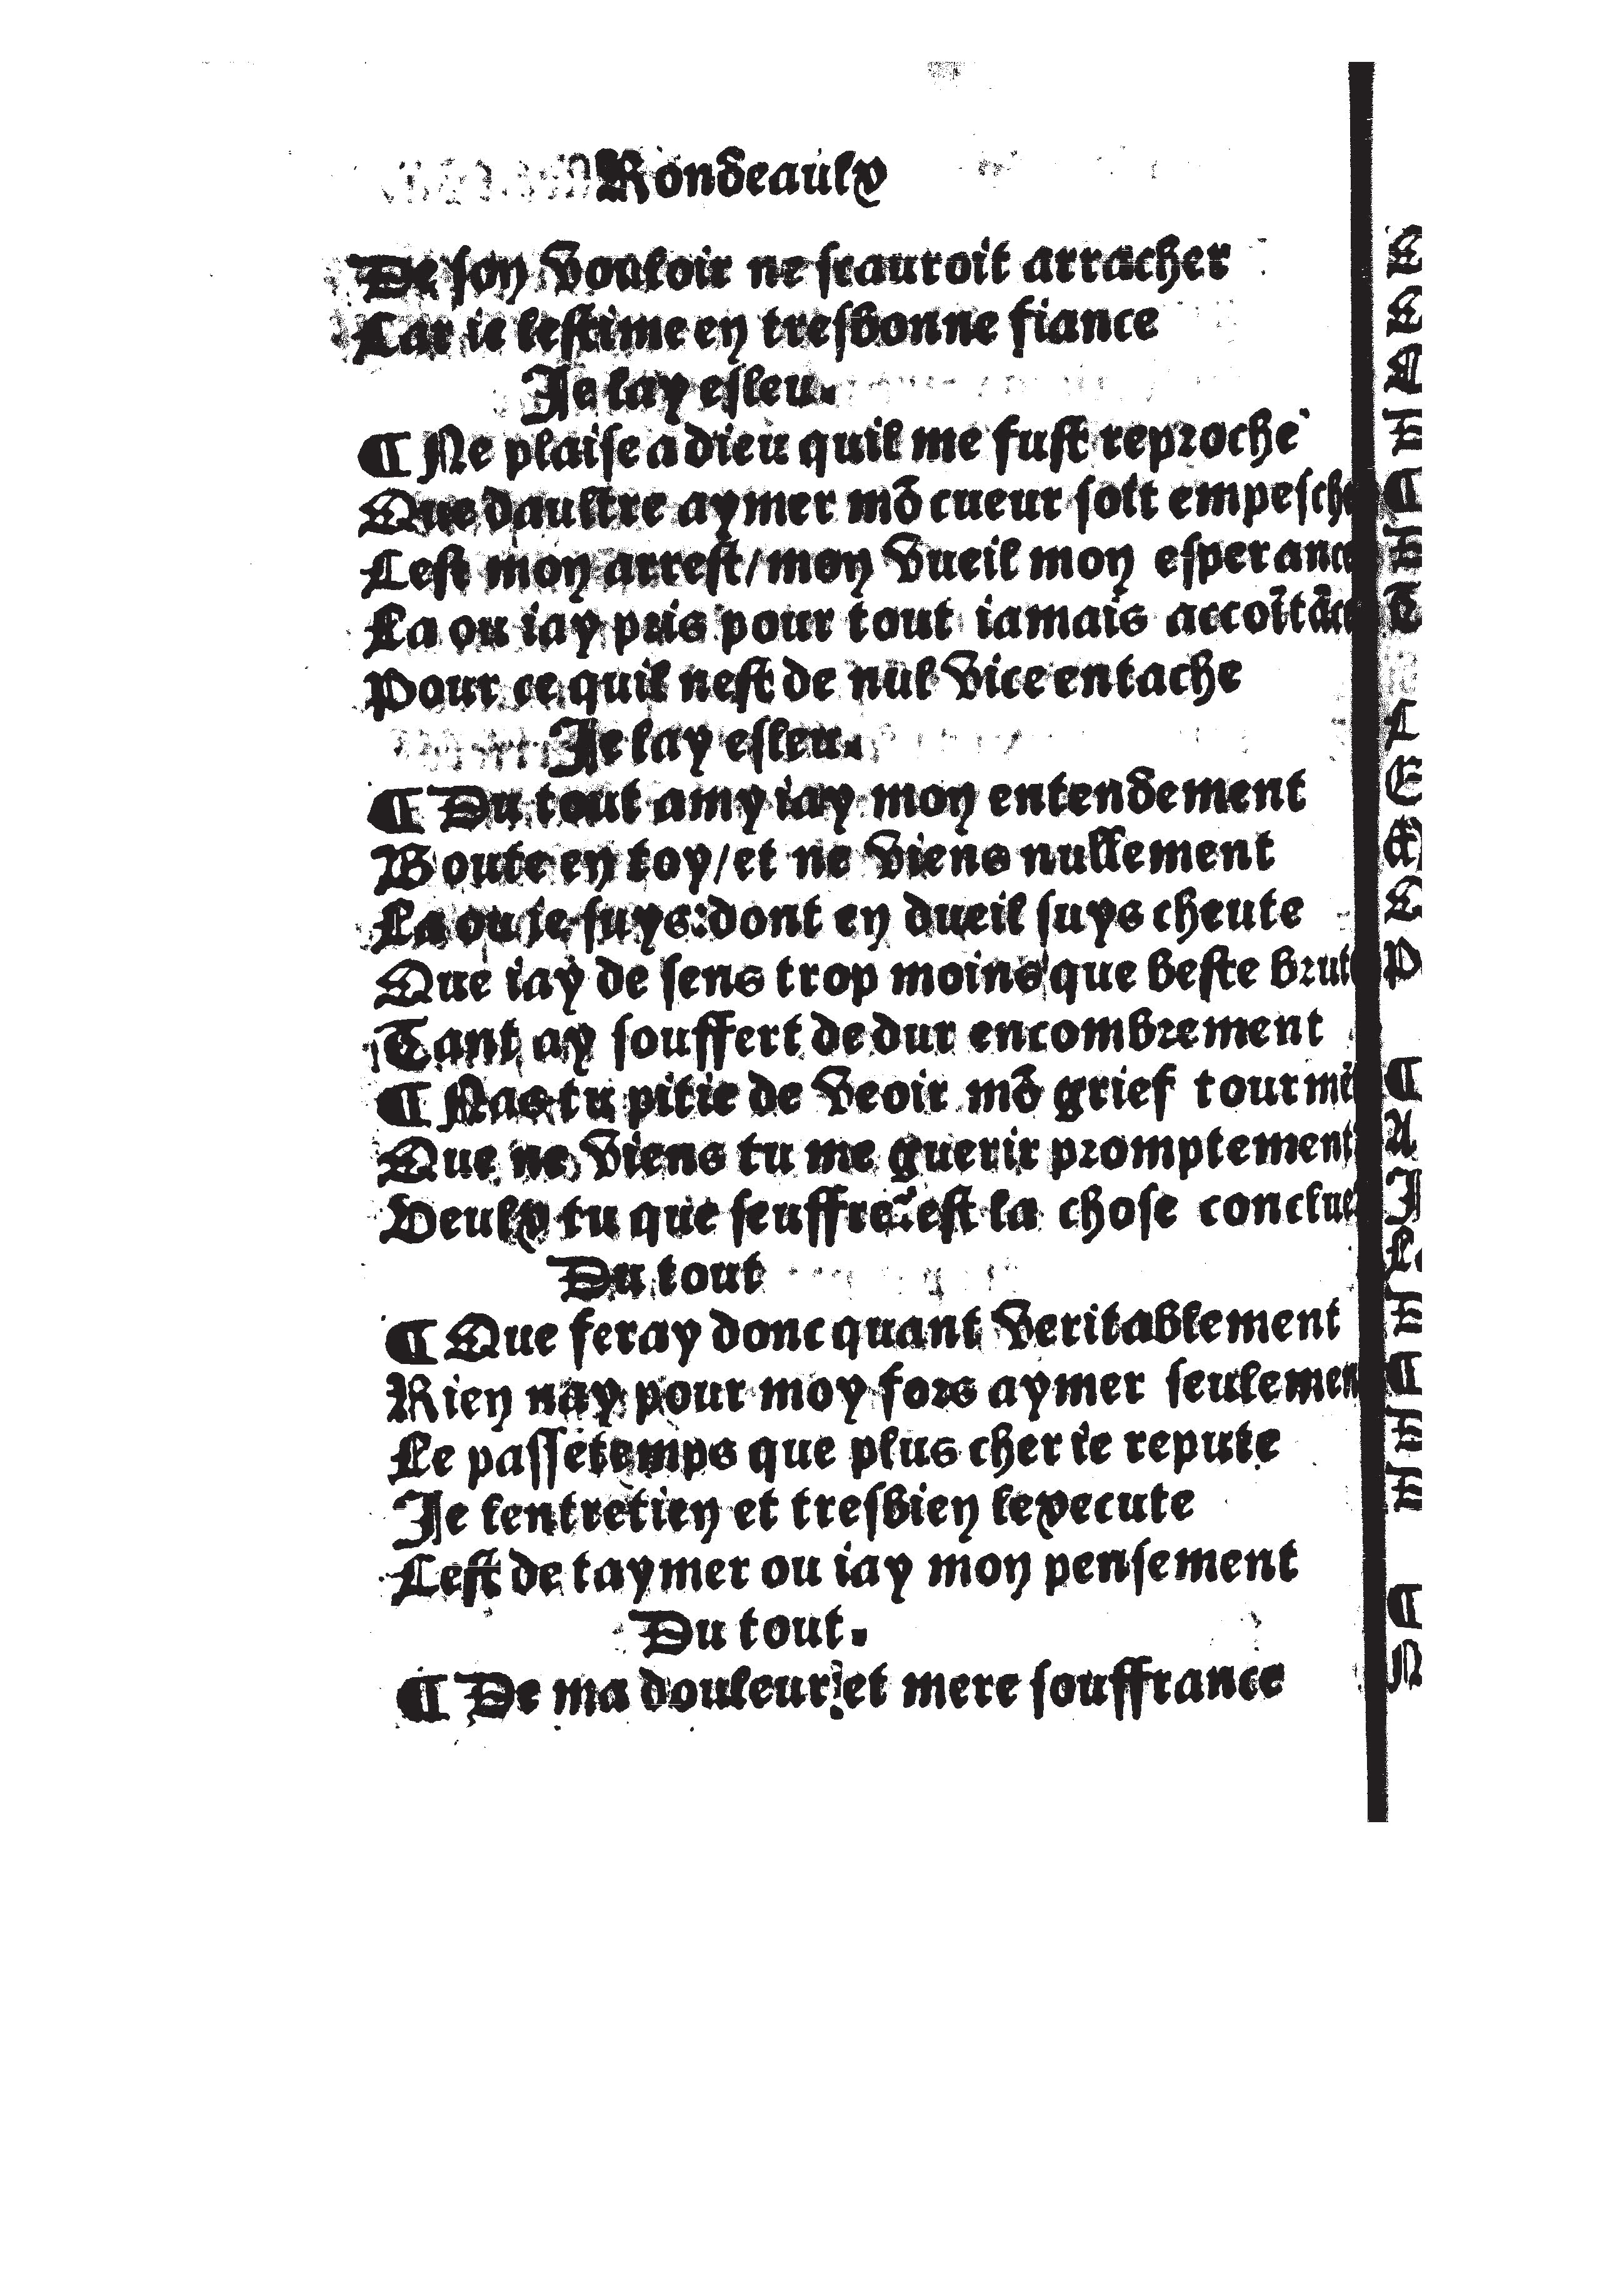 Rondeaulx
De son vouloir ne scauroit arracher
Car ie lestime en tresbonne fiance
Je lay esleu.
¶ Ne plaise a dieu quil me fust reproche
Que daultre aymer mõ cueur soit empesche
Cest mon arrest/mon vueil mon esperance
La ou iay pris pour tout iamais accoĩtãce
Pour ce quil nest de nul vice entache
Je lay esleu.
¶ Du tout amy iay mon entendement
Boute en toy/et ne viens nullement
La ou ie suys:dont en dueil suys cheute
Que iay de sens trop moins que beste brute
Tant ay souffert de dur encombrement
¶ Nas tu pitie de veoir mõ grief tourmẽ
Que ne viens tu me guerir promptement
Veulx tu que seuffre:est la chose conclue
Du tout
¶ Que feray donc quant veritablement
Rien nay pour moy fors aymer seulemen
Le passetemps que plus cher ie repute
Je lentretien et tresbien lexecute
Cest de taymer ou iay mon pensement
Du tout.
¶ De ma douleur/et mere souffrance